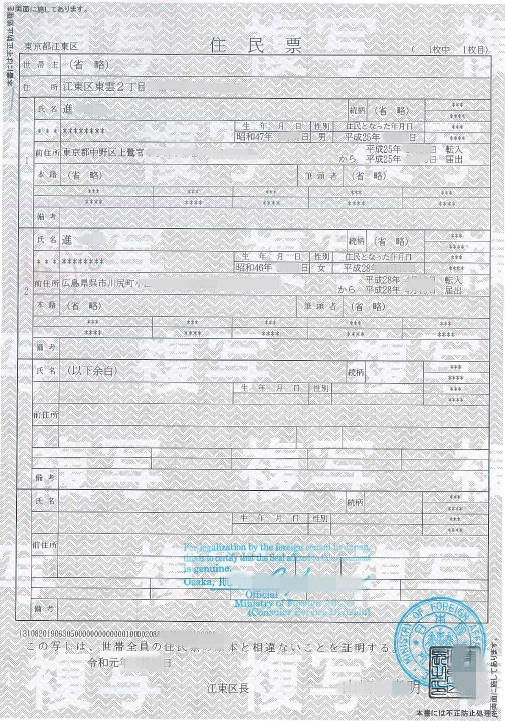 本書には不正防止処理が両面に施してあります。
東京都江東区
住民票
( 1枚中 1枚目)
世帯主 (省 略)
住所 江東区東雲2丁目
1
氏名 進
続柄 (省 略)
***
****
*** ********
生年月日 性別 住民となった年月日
昭和47年 日 男 平成25年
***
****
前住所 東京都中野区上鷺宮
平成25年 日 転入
から 平成25年 日 届出
本籍 (省 略)
筆頭者 (省 略)
*** *** *** *** *** ***
**** **** **** **** **** ****
備考
2
氏名 進
続柄 (省 略)
***
****
*** ********
生年月日 性別 住民となった年月日
昭和46年 日 女 平成28
***
****
前住所 広島県呉市川尻町
平成28年 転入
から 平成28年 日 届出
本籍 (省 略)
筆頭者 (省 略)
*** *** *** *** *** ***
**** **** **** **** **** ****
備考
氏名 (以下余白)
続柄
***
****
生年月日 性別
***
****
前住所
備考
氏名
続柄
***
****
生年月日 性別
***
****
前住所
For legalization by the foreign consul in Japan,
this is to certify that the Seal affixed
is genuine.
Osaka,
Official
Ministry of Foreign
(Consular Service Division)
備考
MINISTRY OF FOREIGN
この写しは、世帯全員の住民票の原本と相違ないことを証明する。
令和元年 日
江東区長
本書には不正防止処理が両面に施してあります。
複写